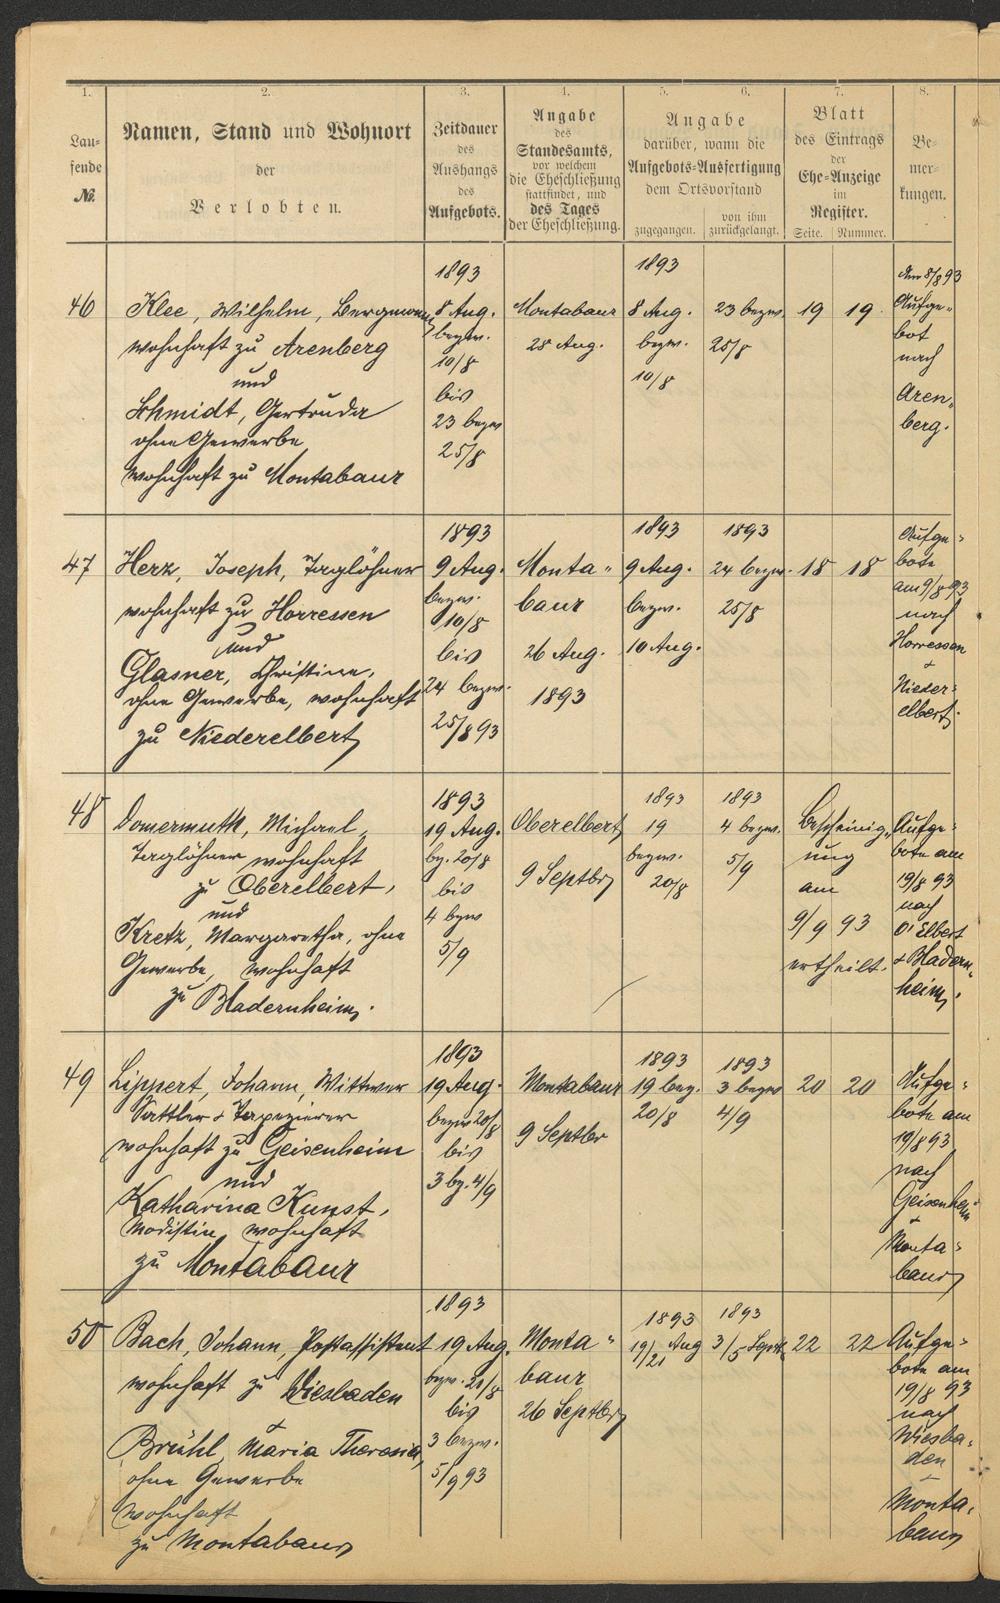 1.
2.
3.
4.
5.
6.
7.
8.
Lau-
fende
No.
Namen, Stand und Wohnort
der
Verlobten.
Zeitdauer
des
Aushangs
des
Aufgebots.
Angabe
des
Standesamts,
vor welchem
die Eheschließung
stattfindet, und
des Tages
der Eheschließung.
Angabe
darüber, wann die
Aufgebots-Ausfertigung
dem Ortsvorstand
zugegangen.
von ihm
zurückgelangt.
Blatt
des Eintrags
der
Ehe-Anzeige
im
Register.
Seite.
Nummer.
Be-
mer-
kungen.
46
Klee, Wilhelm, Bergmann,
wohnhaft zu Arenberg
und
Schmidt, Gertruda
ohne Gewerbe
wohnhaft zu Montabaur
1893
8 Aug.
bezw.
10/8
bis
23 bezw
25/8
Montabaur
28 Aug.
1893
8 Aug.
bezw.
10/8
23 bezw.
25/8
19
19
Am 8/8 93
Aufge-
bot
nach
Aren-
berg.
47
Herz, Joseph, Taglöhner
wohnhaft zu Horressen
und
Glasner, Christine,
ohne Gewerbe, wohnhaft
zu Niederelbert
1893
9 Aug.
bezw.
10/8
bis
24 bezw.
25/8 93
Monta-
baur
26 Aug.
1893
1893
9 Aug.
bezw.
10 Aug.
1893
24 bezw.
25/8
18
18
Aufge-
bote
am 9/8 93
nach
Horressen
+
Nieder-
elbert.
48
Domermuth, Michael,
Taglöhner wohnhaft
zu Oberelbert,
und
Kretz, Margaretha, ohne
Gewerbe, wohnhaft
zu Bladernheim.
1893
19 Aug.
bz. 20/8
bis
4 bzw
5/9
Oberelbert
9 Septbr
1893
19
bezw.
20/8
1893
4 bezw.
5/9
Bescheinig-
ung
am
9/9 93
ertheilt.
Aufge-
bote am
19/8 93
nach
O'Elbert
+ Bladern-
heim.
49
Lippert, Johann, Wittwer
Sattler + Tapezierer
wohnhaft zu Geisenheim
und
Katharina Kunst,
Modistin, wohnhaft
zu Montabaur
1893
19 Aug.
bezw 20/8
bis
3 bz. 4/9
Montabaur
9 Septbr
1893
19 bez.
20/8
1893
3 bezw
4/9
20
20
Aufge-
bote am
19/8 93
nach
Geisenheim
+
Monta-
baur
50
Bach, Johann, Postassistent
wohnhaft zu Wiesbaden
+
Brühl, Maria Theresia,
ohne Gewerbe
wohnhaft
zu Montabaur
1893
19 Aug.
bezw. 21/8
bis
3 bezw.
5/9 93
Monta-
baur
26 Septbr
1893
19/21 Aug
1893
3/5 Septb.
22
22
Aufge-
bote am
19/8 93
nach
Wiesba-
den
+
Monta-
baur